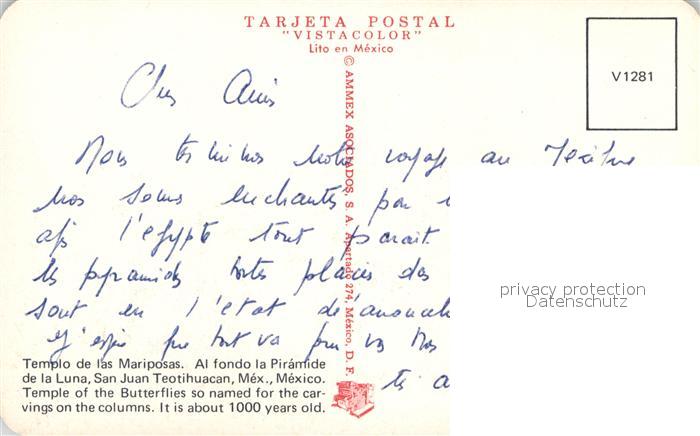 TARJETA POSTAL
"VISTACOLOR"
Lito en México
V1281
© AMMEX ASOCIADOS, S. A. Apartado 274, México, D. F.
Chers Amis
Nous terminons notre voyage au Mexique
nous sommes enchantés
l'egypte tout parait
les pyramides
sont en l'état
J'espère que tout va pour vous
privacy protection
Datenschutz
Templo de las Mariposas. Al fondo la Pirámide
de la Luna, San Juan Teotihuacan, Méx., México.
Temple of the Butterflies so named for the car-
vings on the columns. It is about 1000 years old.